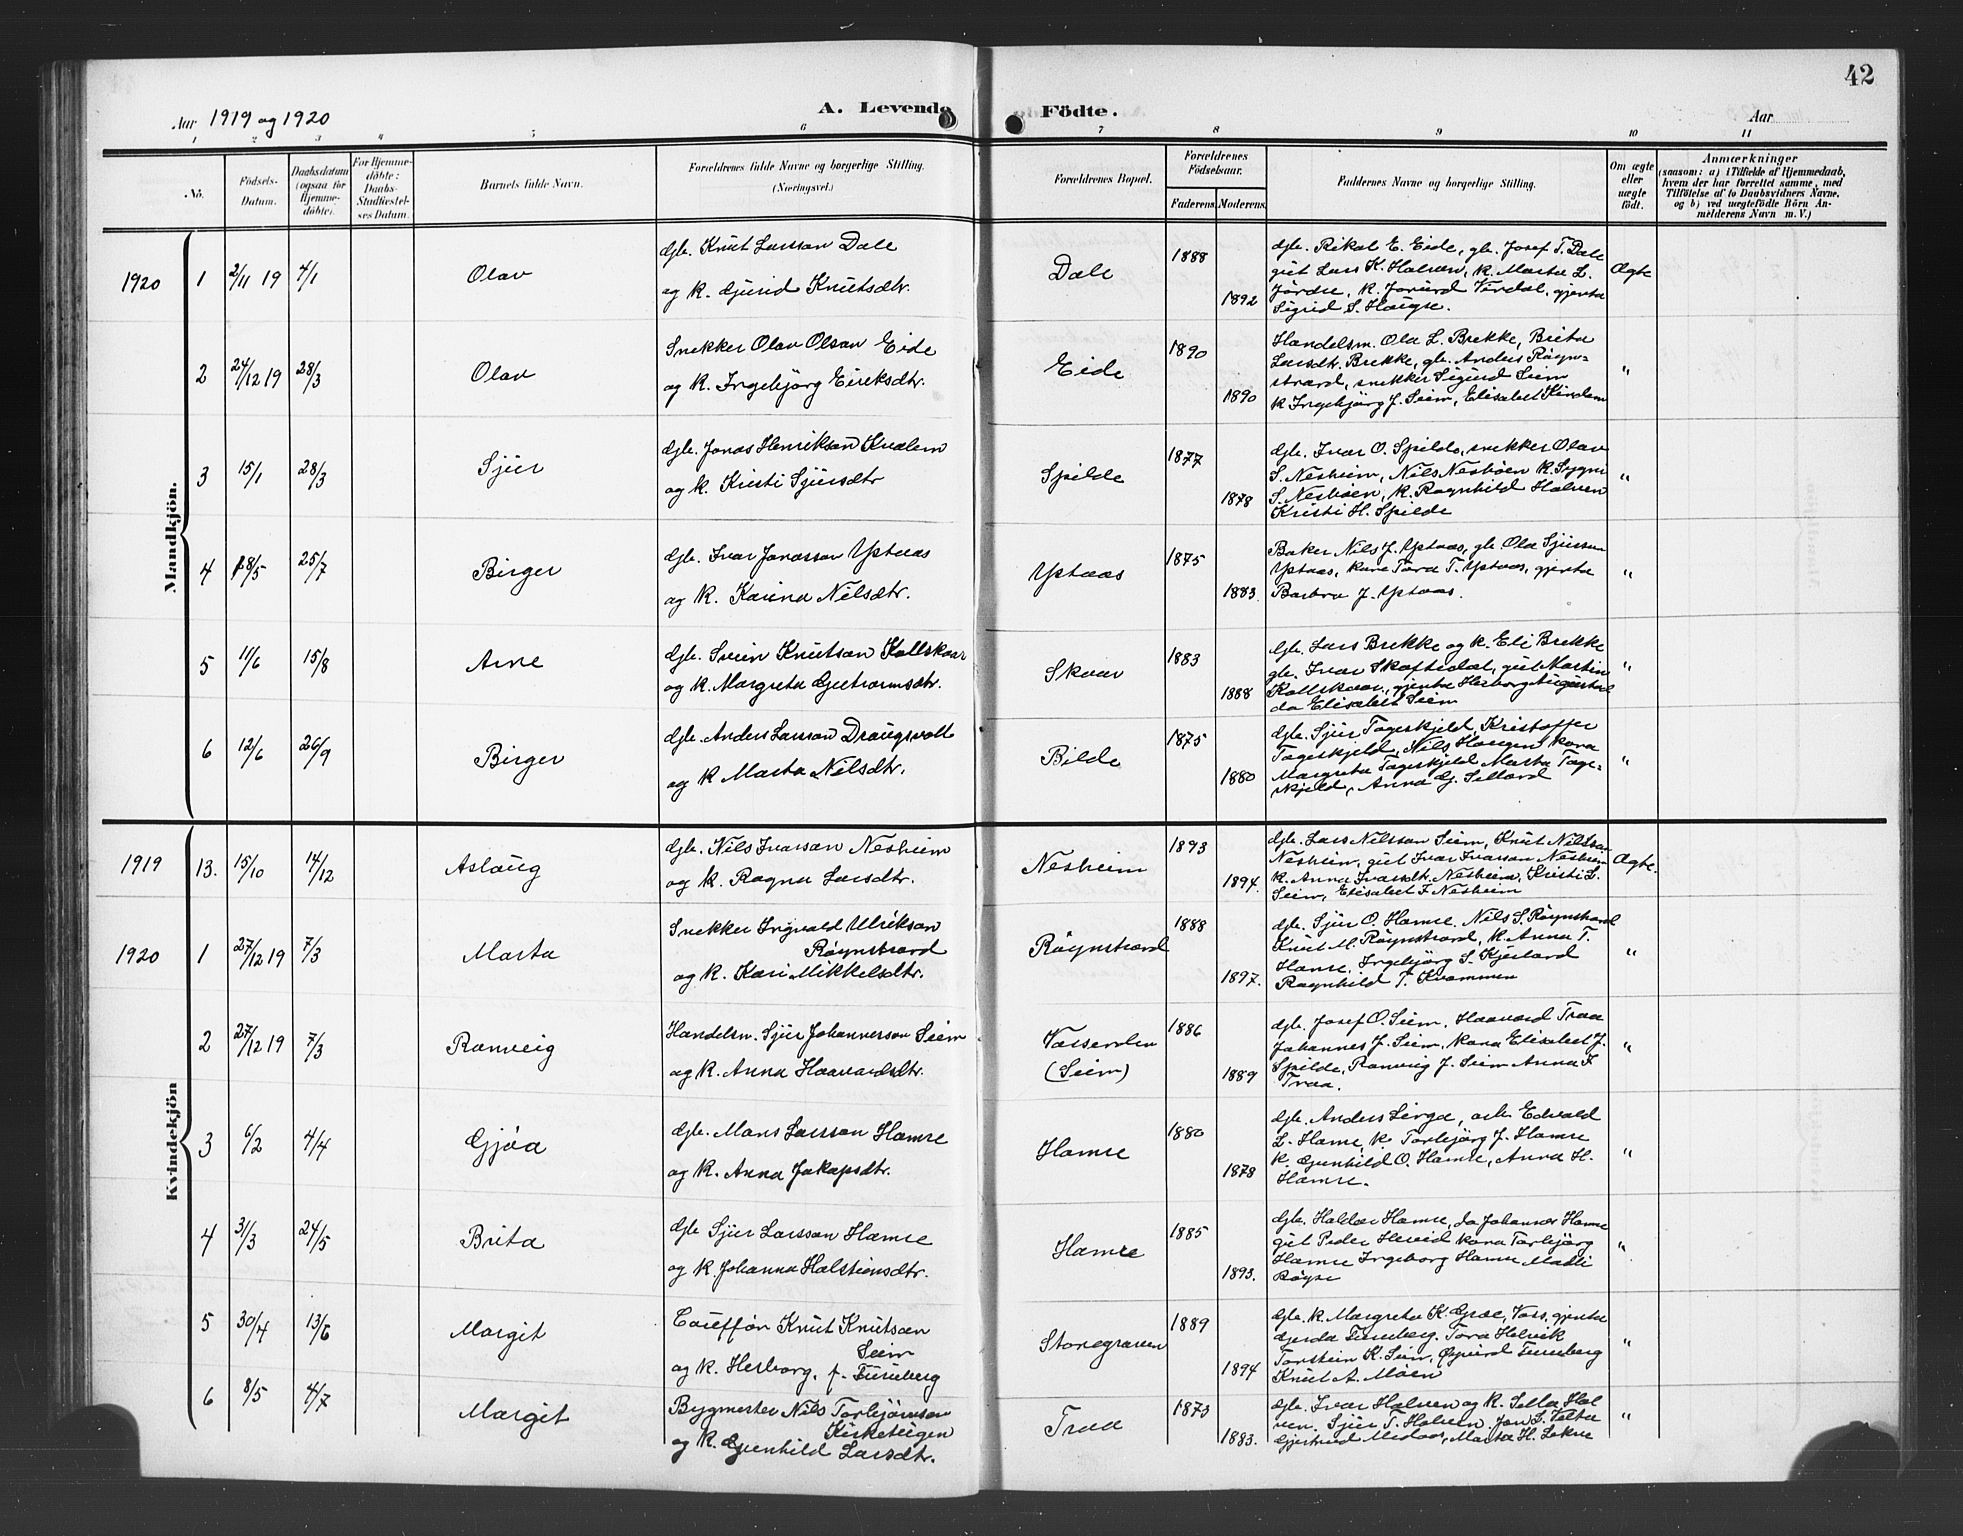 42
Aar 1919 og 1920
A. Levende Födte.
Aar
1 2 3 4 5 6 7 8 9 10 11
No.
Födsels-Datum.
Daabsdatum (ogsaa for Hjemme-döbte).
For Hjemme-döbte: Daabs-Stadfæstel-ses Datum.
Barnets fulde Navn.
Forældrenes fulde Navne og borgerlige Stilling. (Næringsvei.)
Forældrenes Bopæl.
Forældrenes Födselsaar.
Faderens. Moderens.
Faddernes Navne og borgerlige Stilling.
Om ægte eller uægte födt.
Anmærkninger
(saasom: a) i Tilfælde af Hjemmedaab, hvem der har forrettet samme, med Tilföielse af to Daabsvidners Navne, og b) ved uægtefödte Börn An-melderens Navn m. V.)
Mandkjön.
1920 1 2/11 19 4/1 Olav
gbr. Knut Larsson Dale
og k. Gjurid Knutsdtr.
Dale 1888 1892
gbr. Rikol E. Eide, gbr. Josef T. Dale
gut Lars K. Halven, k. Marta L.
k. Jorund Virdal, gjenta
Sigrid S. Haugse.
Ægte
2 24/12 19 28/3 Olav
Snekker Olav Olson Eide
og k. Ingebjörg Eiriksdtr.
Eide 1890 1890
Handelsm. Ola L. Brekke, Brita
Larsdtr. Brekke, gbr. Anders Röyn-
strand, snekker Sigurd Seim
k Ingebjörg J. Seim, Elisabet Kindem
"
3 15/1 28/3 Sjur
gbr. Jonas Henrikson Kvalem
og k. Kristi Sjursdtr
Spilde 1877 1878
gbr. Ivar O. Spilde, snekker Olav
S. Nesheim, Nils Nesheim k. Sygni
S. Nesheim, k. Ragnhild Halven
Kristi H. Spilde
"
4 18/5 25/7 Birger
gbr. Ivar Jonasson Ystaas
og k. Karina Nilsdtr.
Ystaas 1875 1883
Baker Nils J. Ystaas, gbr. Ola Sjursson
Ystaas, kone Tora T. Ystaas, gjenta
Barbra J. Ystaas.
"
5 11/6 15/8 Arne
gbr. Svein Knutson Kollskaar
og k. Margreta Guttormsdtr.
Skaar 1883 1888
gbr. Lars Brekke og k. Eli Brekke
gbr. Ivar Skaftedal, gut Martin
Kollskaar, gjenta Herborg
do Elisabet Seim
"
6 12/6 26/9 Birger
gbr. Anders Larsson Draugsvoll
og k Marta Nilsdtr.
Bilde 1875 1880
gbr. Sjur Tageskjeld, Kristoffer
Tageskjeld, Nils Haugen, kona
Margreta Tageskjeld Marta Tage-
skjeld, Anna G. Selland
"
Kvindekjön
1919 13. 15/10 14/12 Aslaug
gbr. Nils Ivarson Nesheim
og k. Ragna Larsdtr.
Nesheim 1893 1894.
gbr. Lars Nilsson Seim, Knut Nilsson
Nesheim, gut Ivar Ivarson Nesheim
k. Anna Ivarsdtr. Nesheim, Kristi L.
Seim, Elisabet I. Nesheim
Ægte.
1920 1 27/12 19 7/3 Marta
Snekker Ingvald Ulrikson
Röynstrand
og k. Kari Mikkelsdtr.
Röynstrand 1888 1897.
gbr. Sjur O. Hamre, Nils S. Röynstrand
Knut M. Röynstrand, k. Anna T.
Hamre, Ingebjörg S. Kjerland
Ragnhild T. Kvammen
"
2 27/12 19 7/3 Ranveig
Handelsm. Sjur Johannesson Seim
og k. Anna Haavardsdtr.
Vassenden
(Seim)
1886 1889
gbr. Josef O. Seim, Haavard Traa
Johannes J. Seim, kona Elisabet J.
Spilde, Ranveig J. Seim Anna I
Traa.
"
3 6/2 4/4 Gjöa
gbr. Mons Larsson Hamre
og k. Anna Jakopsdtr.
Hamre 1880 1878
gbr. Anders Lirga, arb. Edvald
L. Hamre, k Torbjörg J. Hamre
k. Gunhild O. Hamre, Anna H.
Hamre.
"
4 31/3 24/5 Brita
gbr. Sjur Larsson Hamre
og k. Johanna Halsteinsdtr.
Hamre 1885 1893.
gbr. Haldor Hamre, do Johannes Hamre
gut Peder kona Torbjörg
Hamre Ingeborg Hamre
"
5 30/4 13/6 Margit
Knut Knutson
Seim
og k. Herborg, f. Furuberg
Storegraven 1889 1894
gbr. k. Margreta K. Gjöe, Voss, gjenta
Gjerda Furuberg. Tora Holvik
Torstein K. Seim, Öyvind Furuberg
Knut A. Moen
"
6 8/5 4/7 Margit
Bygmester Nils Torbjörnson
Kirketeigen
og k. Gunhild Larsdtr.
Traa 1873 1883.
gbr. Ivar Halven og k. Hal
ven. Sjur T. Halven. Jon
Gjertrud Midaas, Marta H.
"